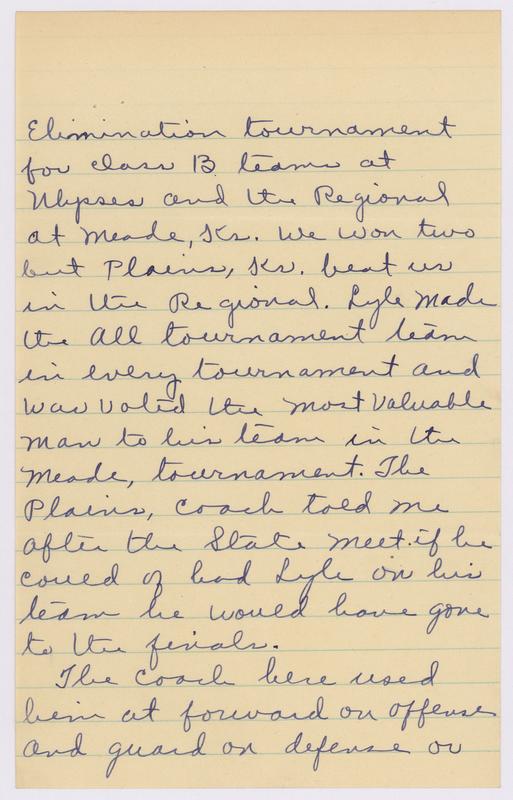 Elimination tournament
for class B teams at
Ulysses and the Regional
at Meade, Ks. We won two
but Plains, Ks. beat us
in the Regional. Lyle made
the All tournament team
in every tournament and
was voted the most valuable
man to his team in the
Meade, tournament. The
Plains, coach told me
after the State meet. if he
could of had Lyle on his
team he would have gone
to the finals.
The coach here used
him at forward on offense
and guard on defense or